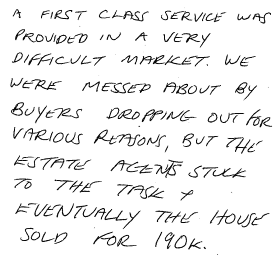 A FIRST CLASS SERVICE WAS
PROVIDED IN A VERY
DIFFICULT MARKET. WE
WERE MESSED ABOUT BY
BUYERS DROPPING OUT FOR
VARIOUS REASONS, BUT THE
ESTATE AGENTS STUCK
TO THE TASK &
EVENTUALLY THE HOUSE
SOLD FOR 190K.